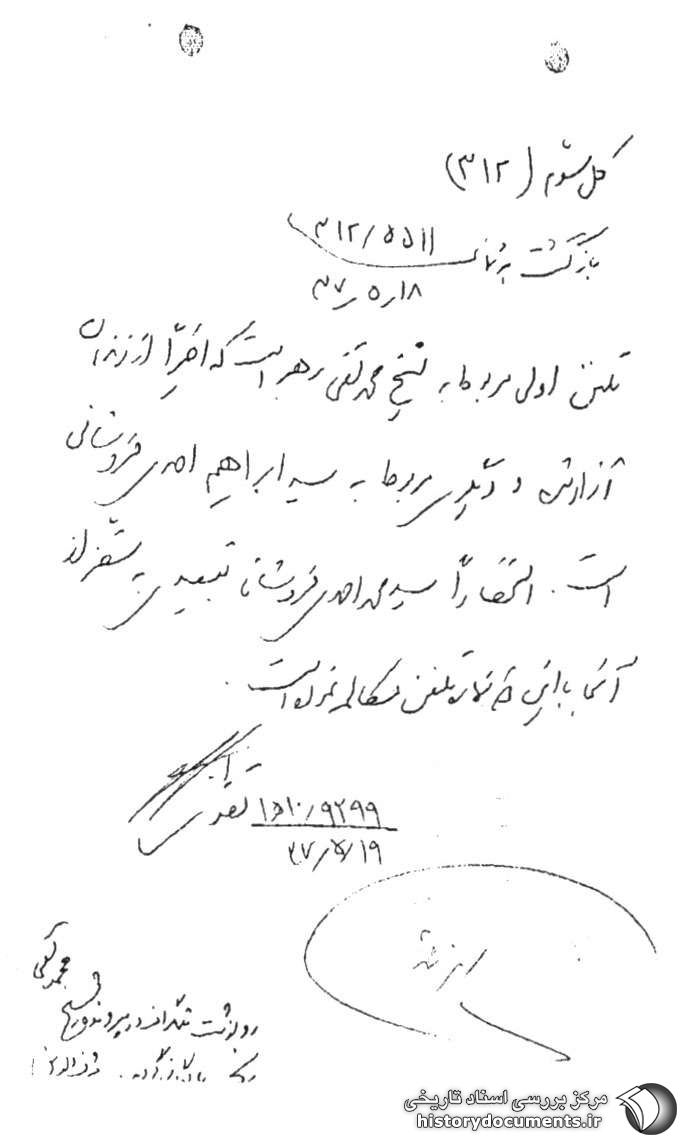 کل سوم (۳۱۲)
بازگشت به شماره ۳۱۲/۵۵۱۱
۳۷/۵/۱۸
تلفن اولی مربوط به شیخ محمدتقی رهبر است که اخیراً از زندان
آزاد شده و دیگری مربوط به سید ابراهیم احمدی فروشانی
است. انحصاراً سید محمد احمدی فروشانی تبعیدی به سقز از
آنجا با این دو شماره تلفن مکالمه نموده است.
تقوی
۱۵۱۰/۹۲۹۹
۳۷/۵/۱۹
رمز شد
محمدتقی
رونوشت تلگراف در پرونده شیخ
بایگانی گردد.
مرکز بررسی اسناد تاریخی
historydocuments.ir